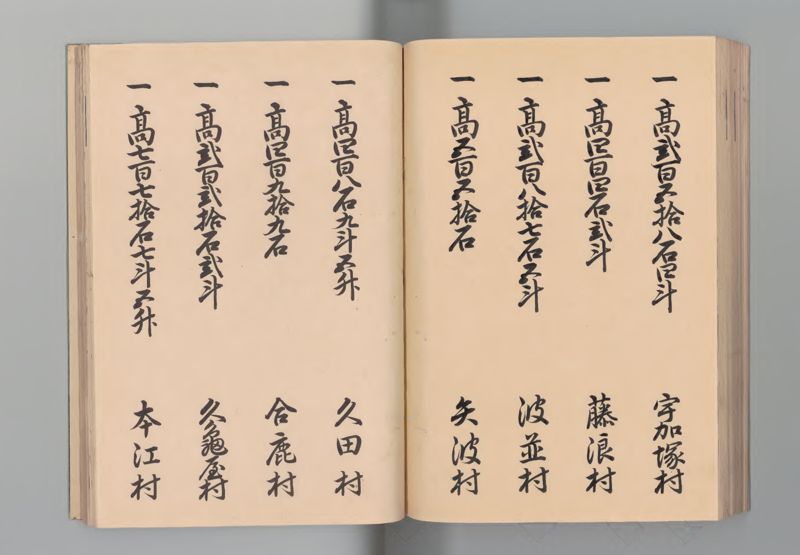 一高弐百五拾八石四斗 宇加塚村
一高四百四石弐斗 藤浪村
一高弐百八拾七石五斗 波並村
一高五百五拾石 矢波村
一高四百八石九斗五升 久田村
一高四百九拾九石 合鹿村
一高弐百弐拾石弐斗 久亀屋村
一高七百七拾石七斗五升 本江村